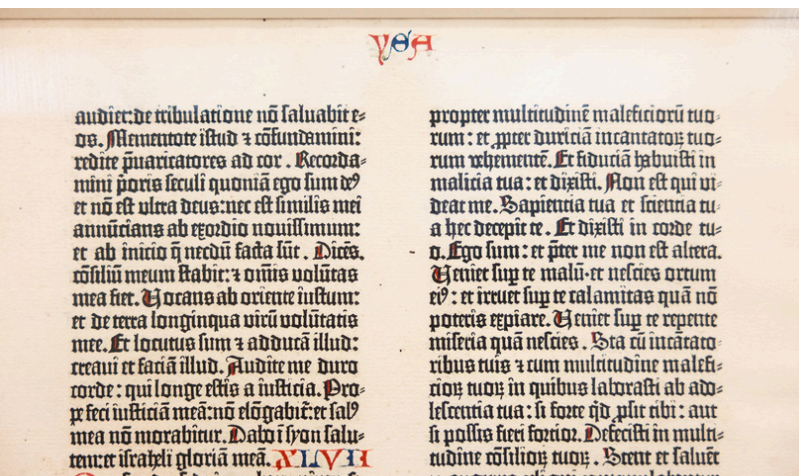 YSA
audiet:de tribulatione nō saluabit e⸗
os. Mementote istud ⁊ cōfundamini:
redite p̄uaricatores ad cor. Recorda⸗
mini p̄oris seculi quoniā ego sum deꝰ
et nō est ultra deus:nec est similis mei
annūcians ab exordio nouissimum:
et ab inicio q̄ necdū facta sūt. Dicēs.
cōsiliū meum stabit:⁊ om̄is volūtas
mea fiet. Vocans ab oriente iustum:
et de terra longinqua virū volūtatis
mee. Et locutus sum ⁊ adducā illud:
creaui et faciā illud. Audite me duro
corde: qui longe estis a iusticia. Pro⸗
pe feci iusticiā meā:nō elōgabit̄:et salꝰ
mea nō morabitur. Dabo ī syon salu⸗
tem:et israheli gloriā meā. XLVII
propter multitudinē maleficiorū tuo⸗
rum: et ꝓpter duriciā incantatoꝝ tuo⸗
rum vehementē. Et fiduciā habuisti in
malicia tua: et dixisti. Non est qui vi⸗
deat me. Sapientia tua et scientia tu⸗
a hec decepit te. Et dixisti in corde tu⸗
o. Ego sum: et p̄ter me non est altera.
Veniet suꝑ te malū·et nescies ortum
eiꝰ: et irruet suꝑ te calamitas quā nō
poteris expiare. Veniet suꝑ te repente
miseria quā nescies. Sta cū incātato⸗
ribus tuis ⁊ cum multitudine malefi⸗
cioꝝ tuoꝝ in quibus laborasti ab ado⸗
lescentia tua: si forte qͥd ꝓsit tibi: aut
si possis fieri fortior. Defecisti in multi⸗
tudine cōsilioꝝ tuoꝝ. Stent et saluēt